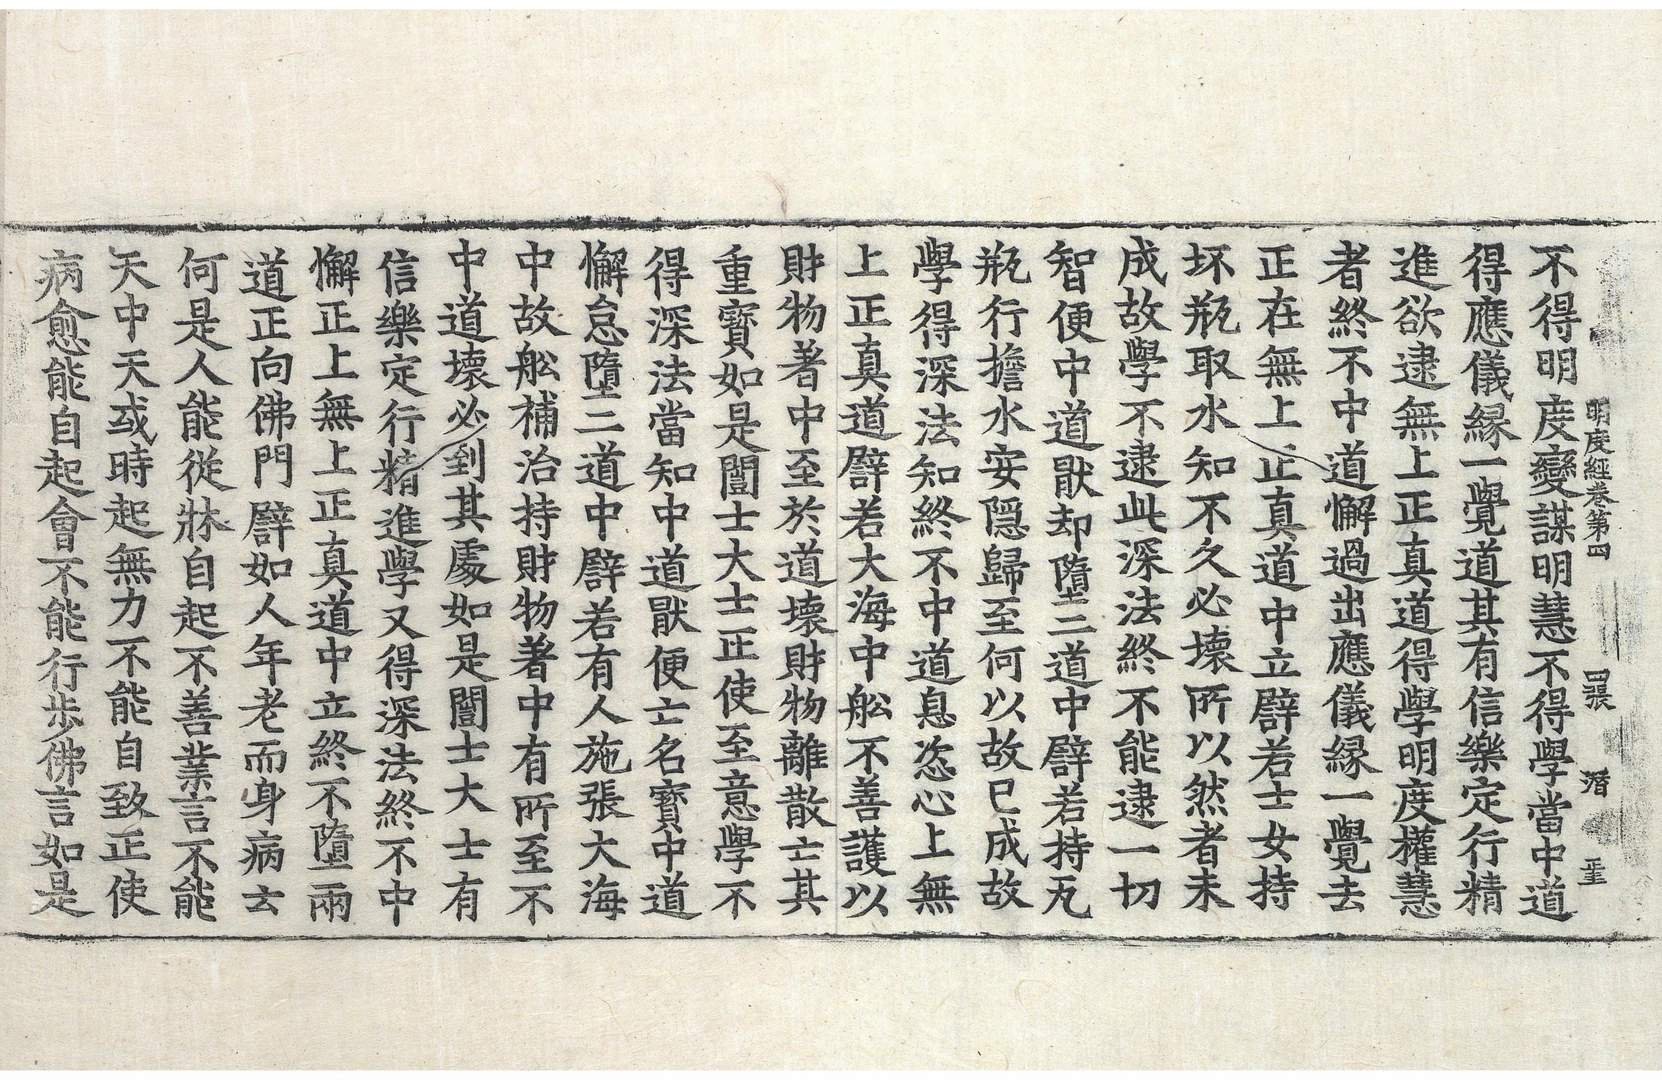 明度經卷第四 四張 潛 玊
不得明度變謀明慧不得學當中道
得應儀緣一覺道其有信樂定行精
進欲逮無上正真道得學明度權慧
者終不中道懈過出應儀緣一覺去
正在無上正真道中立譬若士女持
坏瓶取水知不久必壞所以然者未
成故學不逮此深法終不能逮一切
智便中道猒却墮二道中譬若持瓦
瓶行擔水安隱歸至何以故已成故
學得深法知終不中道息恣心上無
上正真道譬若大海中舩不善護以
財物著中至於道壞財物離散亡其
重寶如是闓士大士正使至意學不
得深法當知中道猒便亡名寶中道
懈怠墮二道中譬若有人施張大海
中故舩補治持財物著中有所至不
中道壞必到其處如是闓士大士有
信樂定行精進學又得深法終不中
懈正上無上正真道中立終不墮兩
道正向佛門譬如人年老而身病去
何是人能從牀自起不善業言不能
天中天或時起無力不能自致正使
病愈能自起會不能行步佛言如是